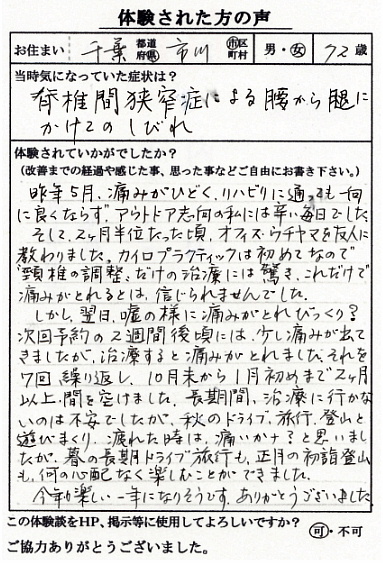 体験された方の声
お住まい 千葉 都道府県 市川 市区町村 男・女 72歳
当時気になっていた症状は？
脊椎間狭窄症による腰から腿に
かけてのしびれ
体験されていかがでしたか？
(改善までの経過や感じた事、思った事などご自由にお書き下さい。)
昨年5月、痛みがひどく、リハビリに通っても一向
に良くならず、アウトドア志向の私には辛い毎日でした。
そして、2ヶ月半位たった頃、オフィス・ウチヤマを友人に
教わりました。カイロプラクティックは初めてなので
"頸椎の調整"だけの治療には驚き、これだけで
痛みがとれるとは、信じられませんでした。
しかし、翌日、嘘の様に痛みがとれびっくり？
次回予約の2週間後頃には、少し痛みが出て
きましたが、治療すると痛みがとれました。それを
7回、繰り返し、10月末から1月初めまで2ヶ月
以上間を空けました。長期間、治療に行かな
いのは不安でしたが、秋のドライブ、旅行、登山と
遊びまくり、疲れた時は、痛いかナ？と思いまし
たが、暮の長期ドライブ旅行も、正月の初詣登山
も、何の心配なく楽しむことができました。
今年も楽しい一年になりそうです。ありがとうございました。
この体験談をHP、掲示等に使用してよろしいですか？ 可・不可
ご協力ありがとうございました。